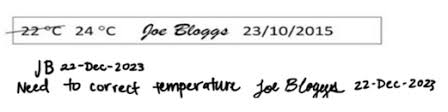 22 °C 24 °C Joe Bloggs 23/10/2015
JB 22-Dec-2023
Need to correct temperature Joe Bloggs 22-Dec-2023